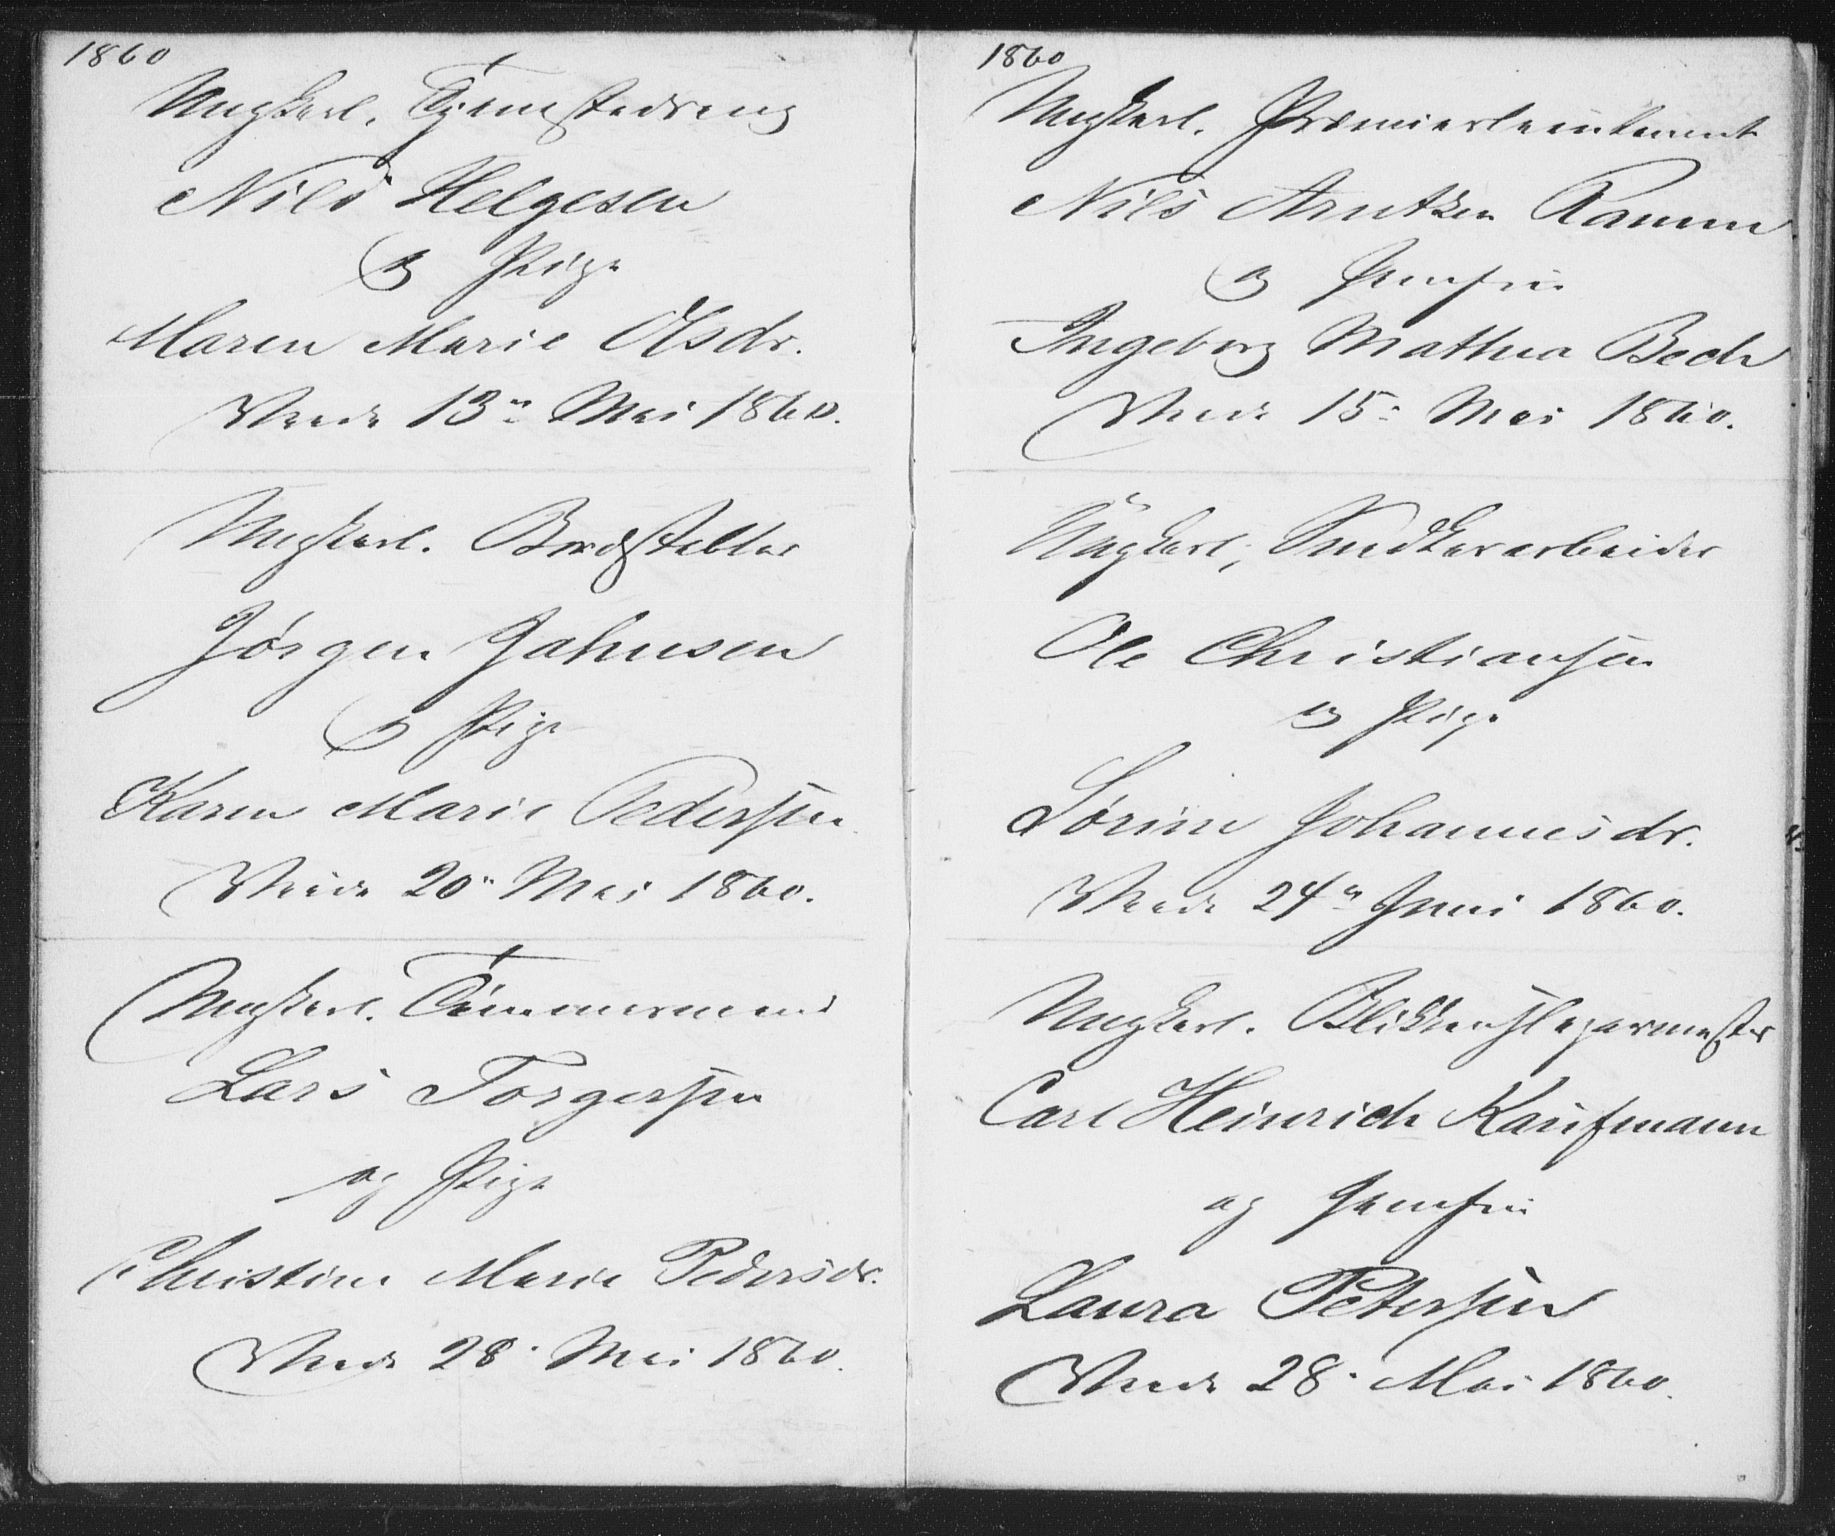 1860
Ungkarl. Tjenestedreng
Nils Helgesen
og Pige
Maren Marie Olsdr.
Viede 13de Mai 1860.
Ungkarl. Bogstelter
Jørgen Jahnsen
og Pige
Karen Marie Pedersen
Viede 20de Mai 1860.
Ungkarl. Tømmermand
Lars Torgersen
og Pige
Christine Marie Pedersdr.
Viede 28. Mai 1860.
1860
Ungkarl. Premierleutenant
Nils Arntzen Ramm
og Jomfru
Ingeborg Mathea Bech
Viede 15. Mai 1860.
Ungkarl, Snedkerarbeider
Ole Christiansen
og Pige
Sørine Johannesdr.
Viede 24de Juni 1860.
Ungkarl. Blikkenslagermester
Carl Heinrich Kaufmann
og Jomfru
Laura Petersen
Viede 28. Mai 1860.